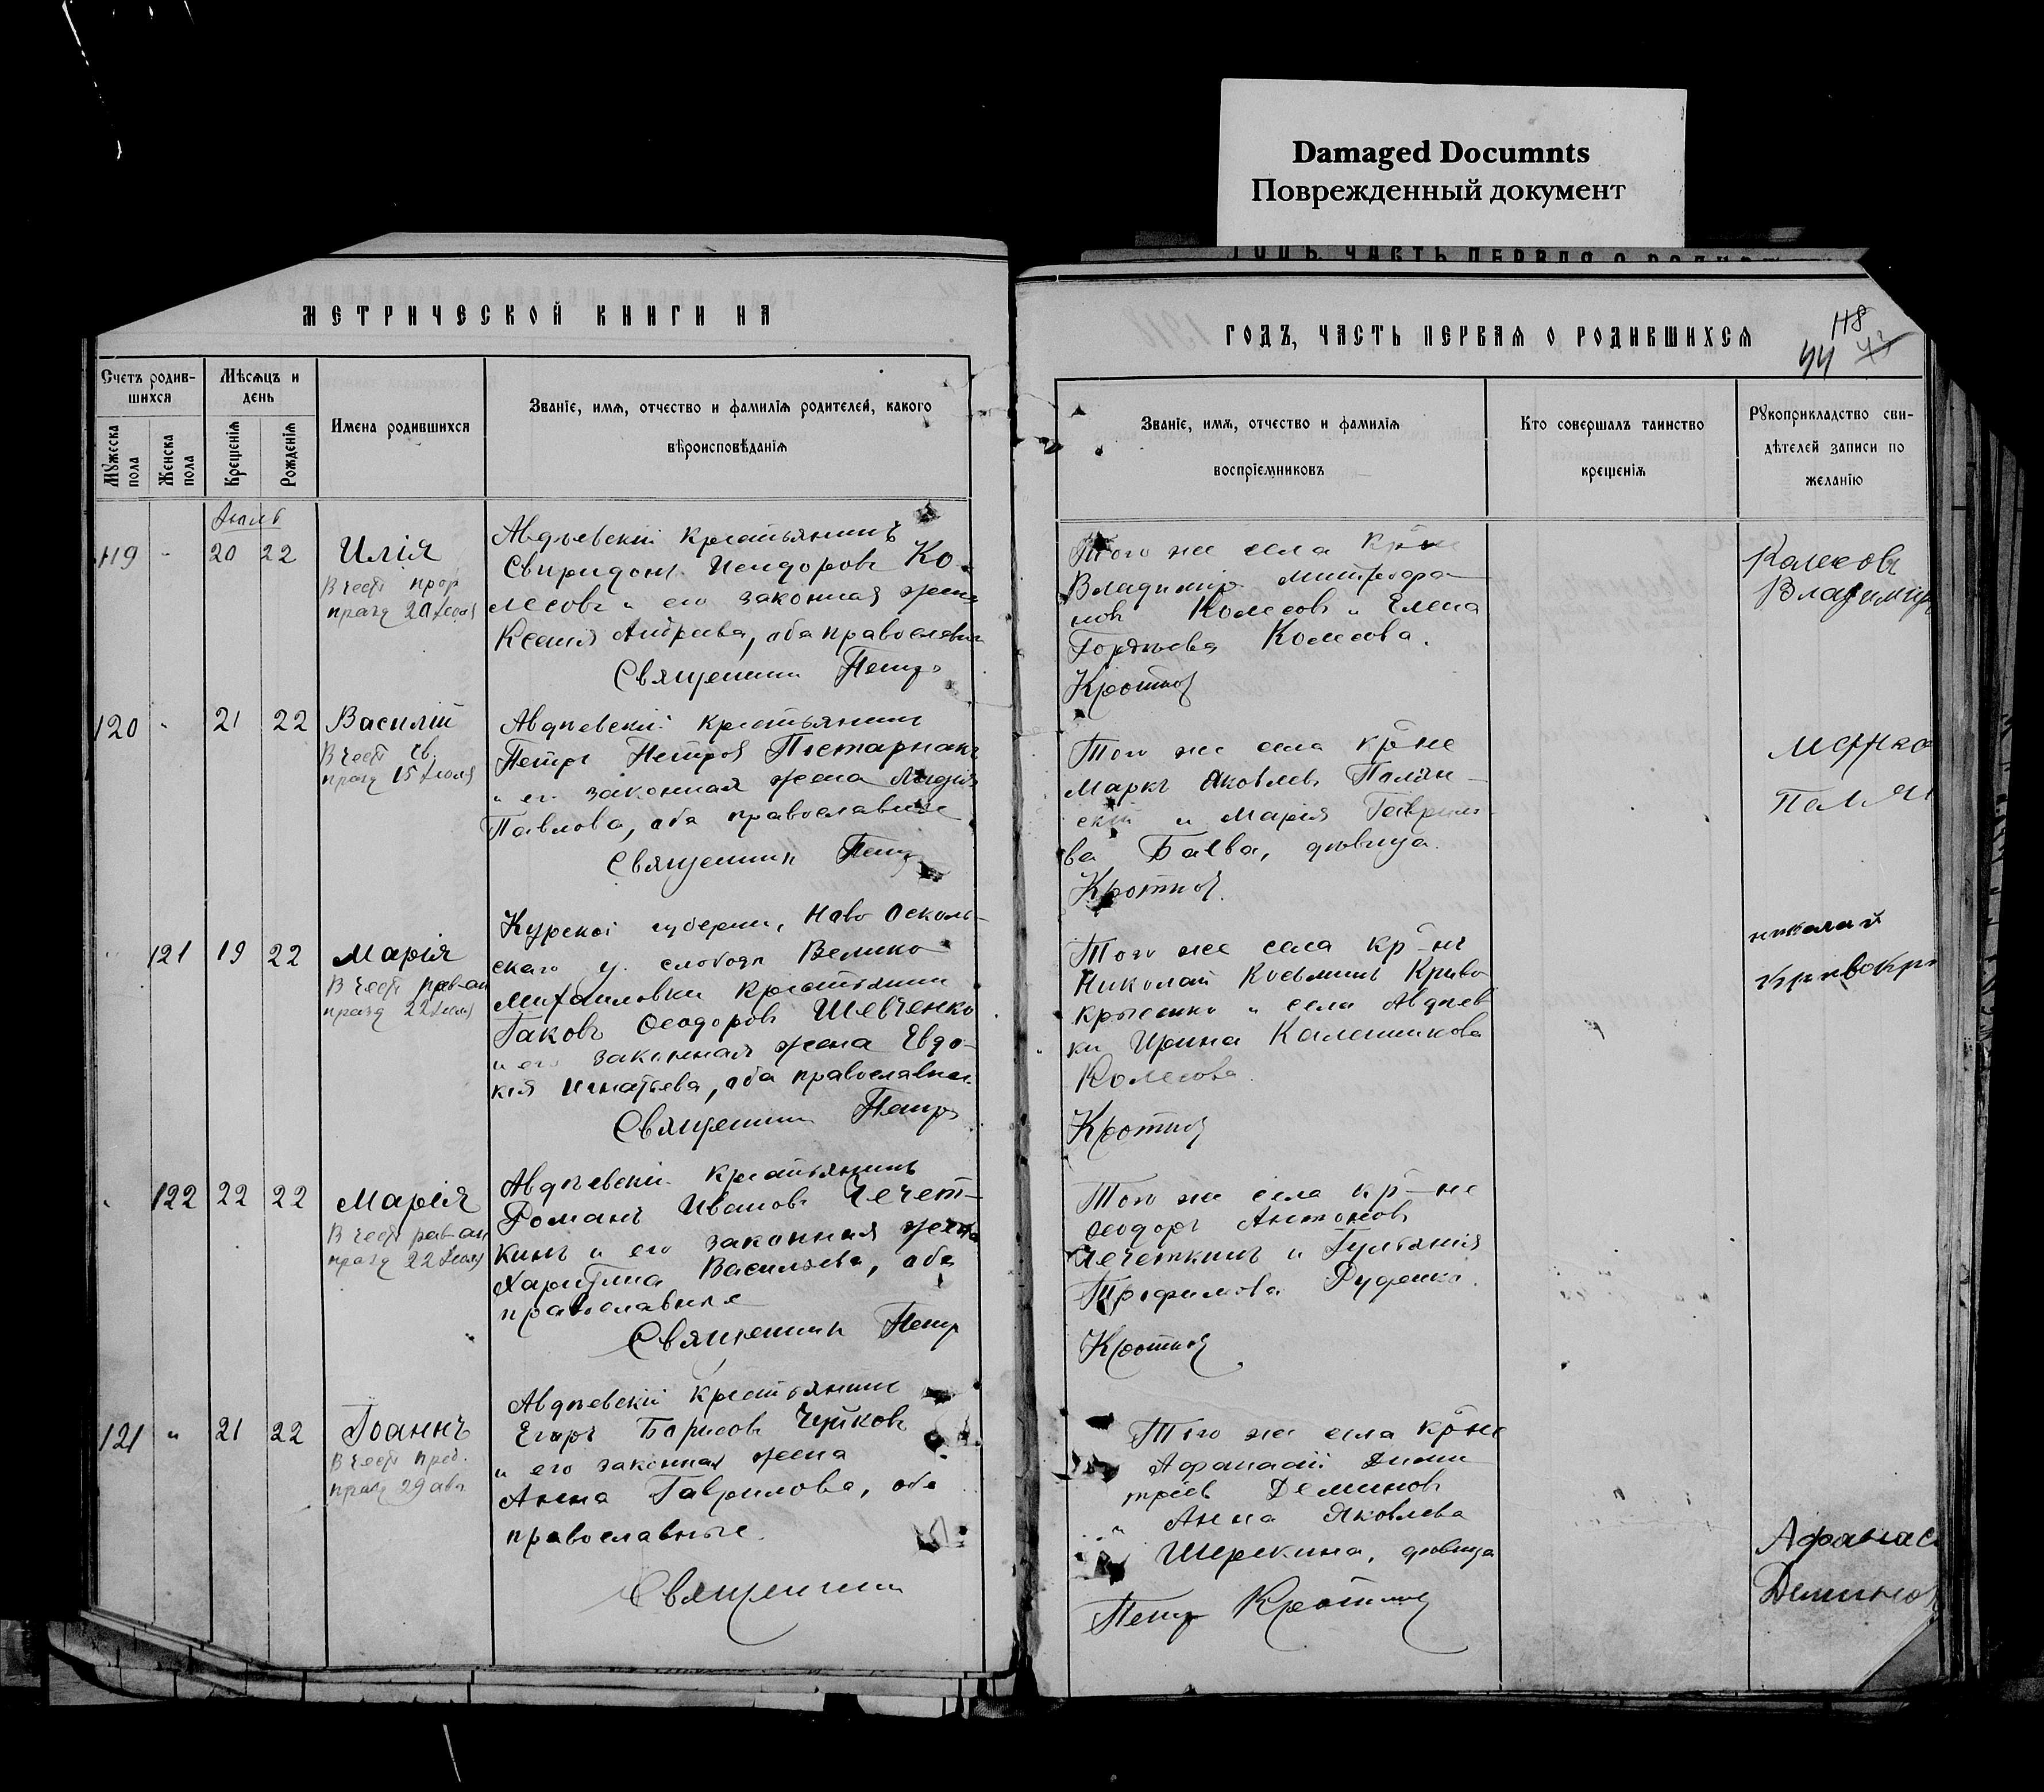 Damaged Documnts
Поврежденный документ
МЕТРИЧЕСКОЙ КНИГИ НА
Счетъ родив-
шихся
Мѣсяцъ и
день
Мужеска
пола
Женска
пола
Крещенія
Рожденія
Имена родившихся
Званіе, имя, отчество и фамилія родителей, какого
вѣроисповѣданія
119
20 22
Илія
празд 20 Іюля
Авдѣевскій крестьянинъ
Свиридонъ Исидоровъ Ко-
лесовъ и его законная жена
Ксенія Андреева, оба православн
Священникъ Петръ
120
21 22
Василій
В честь Св.
празд 15 Іюля
Авдѣевскій крестьянинъ
Петръ Петровъ
и его законная жена Лидія
Павлова, оба православные
Священникъ Петръ
121 19 22
Марія
В честь рав-ап
празд 22 Іюля
Курской губерніи, Ново Осколь-
скаго у. слободы Велико
Михайловки крестьянинъ
Іаковъ Ѳеодоровъ Шевченко
и его законная жена Евдо-
кія Игнатьева, оба православные
Священникъ Петръ
122 22 22
Марія
В честь рав-ап
празд 22 Іюля
Авдѣевскій крестьянинъ
Романъ Ивановъ Чечет-
кинъ и его законная жена
Харитина Васильева, оба
православные
Священникъ Петръ
121 " 21 22
Іоаннъ
В честь
празд 29 авг
Авдѣевскій крестьянинъ
Егоръ Борисовъ Чуйковъ
и его законная жена
Анна Гаврилова, оба
православные.
Священникъ
ГОДЪ, ЧАСТЬ ПЕРВАЯ О РОДИВШИХСЯ
118
44 43
Званіе, имя, отчество и фамилія
воспріемниковъ
Кто совершалъ таинство
крещенія
Рукоприкладство сви-
дѣтелей записи по
желанію
Того же села кр-не
Владиміръ Митрофа-
новъ Колесовъ и Елена
Гордѣева Колесова.
Кротковъ
Колесовъ
Владимиръ
Того же села кр-не
Маркъ Яковлевъ Полян-
скій и Марія Гаврило-
ва Баева, дѣвица.
Кротковъ
Того же села кр-нъ
Николай Косьминъ Криво
и села Авдѣев
ки Ирина
Колесова.
Кротковъ
николай
Того же села кр-не
Ѳеодоръ Антоновъ
Чечеткинъ и Іуліанія
Трофимова Руденко.
Кротковъ
Того же села кр-не
Афанасій Дими-
тріевъ Деминовъ
и Анна Яковлева
дѣвица
Петръ Кротковъ
Афанас
Деминов